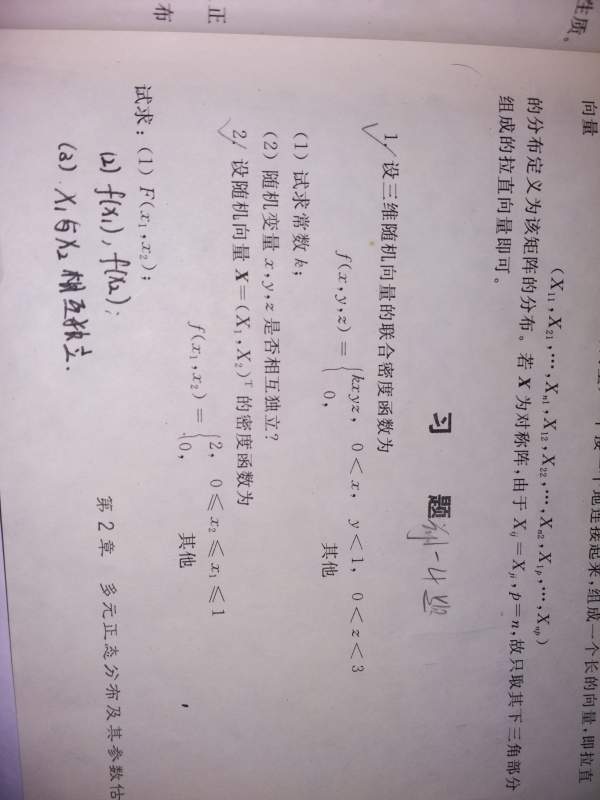 生质。
正
布
向量
(X₁₁,X₂₁,…,Xₙ₁,X₁₂,X₂₂,…,Xₙ₂,X₁ₚ,…,Xₙₚ)
的分布定义为该矩阵的分布。若 X 为对称阵,由于 Xᵢⱼ=Xⱼᵢ,p=n,故只取其下三角部分
组成的拉直向量即可。
习 题
1. 设三维随机向量的联合密度函数为
f(x,y,z)={kxyz, 0<x, y<1, 0<z<3
0, 其他
(1) 试求常数 k;
(2) 随机变量 x,y,z 是否相互独立?
2. 设随机向量 X=(X₁,X₂)ᵀ 的密度函数为
f(x₁,x₂)={2, 0≤x₂≤x₁≤1
0, 其他
试求:(1) F(x₁,x₂);
(2) f(x₁), f(x₂);
(3). X₁与X₂相互独立.
第 2 章 多元正态分布及其参数估